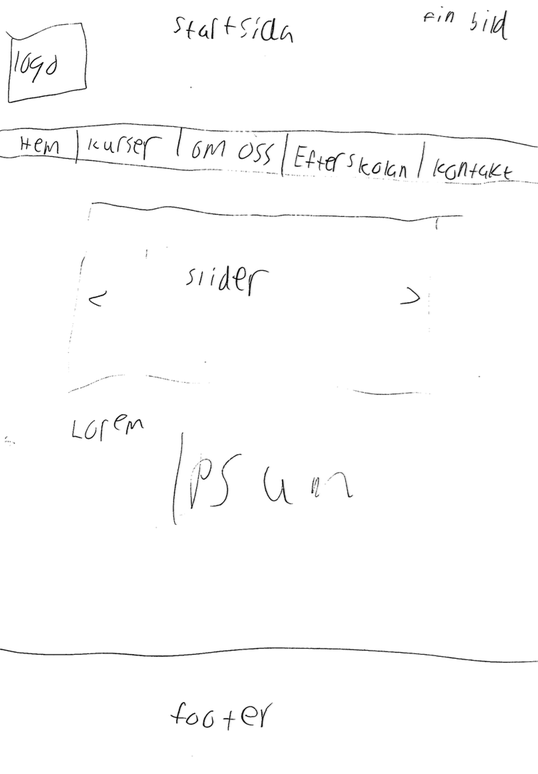 startsida
fin bild
logo
Hem | kurser | om oss | Efterskolan | kontakt
< slider >
Lorem
Ipsum
footer